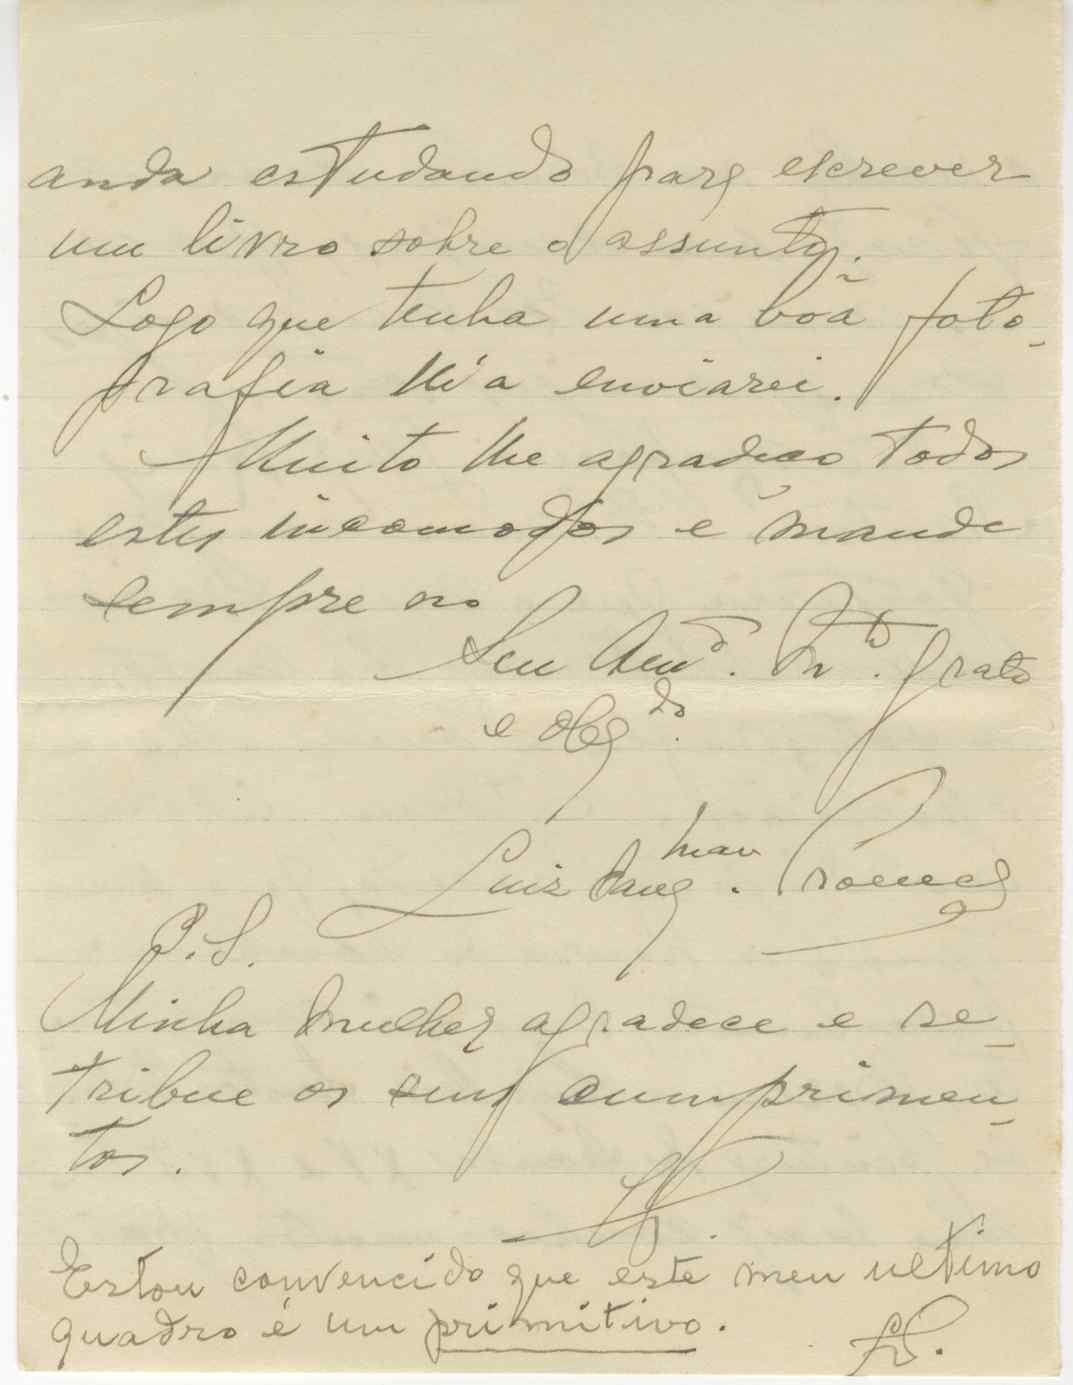 anda estudando para escrever
um livro sobre o assunto.
Logo que tenha uma bôa foto-
grafia lh'a enviarei.
Muito lhe agradeço todos
estes incomodos e mande
sempre no
Seu Am.º grato
e obg.do
Luiz
P.S.
Minha mulher agradece e re-
tribue os seus cumprimen-
tos.
Estou convencido que este meu ultimo
quadro é um primitivo.